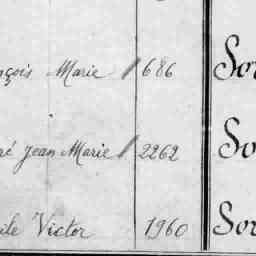 nçois Marie 686 Sor
ré Jean Marie 2262 So
ile Victor 1960 Sor